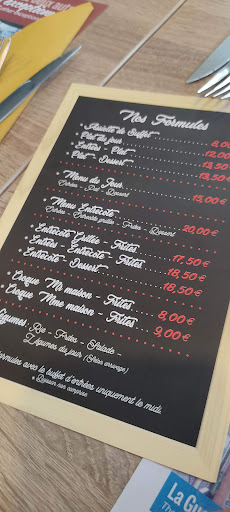 exception
Nos Formules
• Assiette de Buffet 8,00
• Plat du jour 12,00
• Entrées - Plat 13,50
• Plat - Dessert 13,50
Menu du Jour 15,00€
Entrées - Plat - Dessert
Menu Entrecôte 20,00€
Entrées - Entrecôte grillée - Frites - Dessert
• Entrecôte Grillée - Frites 17,50€
• Entrées - Entrecôte - Frites 18,50€
• Entrecôte - Dessert 18,50€
• Croque Mr maison - Frites 8,00€
• Croque Mme maison - Frites 9,00€
Légumes Riz - Frites - Salade -
Légumes du jour (selon arrivage)
Formules avec le buffet d'entrées uniquement le midi.
• Boisson non comprise
La Gu